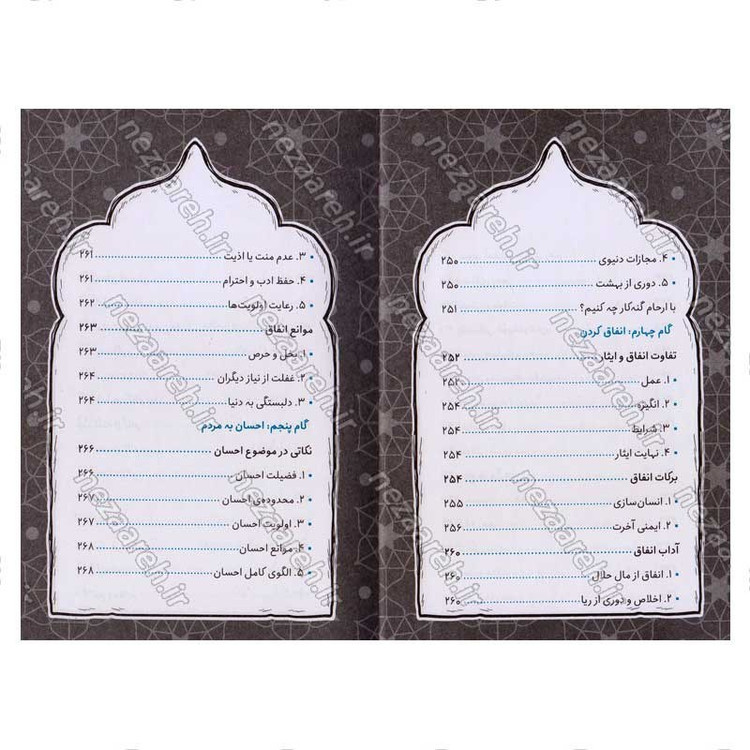 ۴. مجازات دنیوی ۲۵۰
۵. دوری از بهشت ۲۵۰
با ارحام گنه‌کار چه کنیم؟ ۲۵۱
گام چهارم: انفاق کردن
تفاوت انفاق و ایثار ۲۵۲
۱. عمل ۲۵۲
۲. انگیزه ۲۵۴
۳. شرایط ۲۵۴
۴. نهایت ایثار ۲۵۴
برکات انفاق ۲۵۴
۱. انسان‌سازی ۲۵۵
۲. ایمنی آخرت ۲۵۶
آداب انفاق ۲۶۰
۱. انفاق از مال حلال ۲۶۰
۲. اخلاص و دوری از ریا ۲۶۰
۳. عدم منت یا اذیت ۲۶۱
۴. حفظ ادب و احترام ۲۶۱
۵. رعایت اولویت‌ها ۲۶۲
موانع انفاق ۲۶۳
۱. بخل و حرص ۲۶۳
۲. غفلت از نیاز دیگران ۲۶۴
۳. دلبستگی به دنیا ۲۶۴
گام پنجم: احسان به مردم
نکاتی در موضوع احسان ۲۶۶
۱. فضیلت احسان ۲۶۶
۲. محدوده‌ی احسان ۲۶۷
۳. اولویت احسان ۲۶۷
۴. موانع احسان ۲۶۸
۵. الگوی کامل احسان ۲۶۸
nezaareh.ir